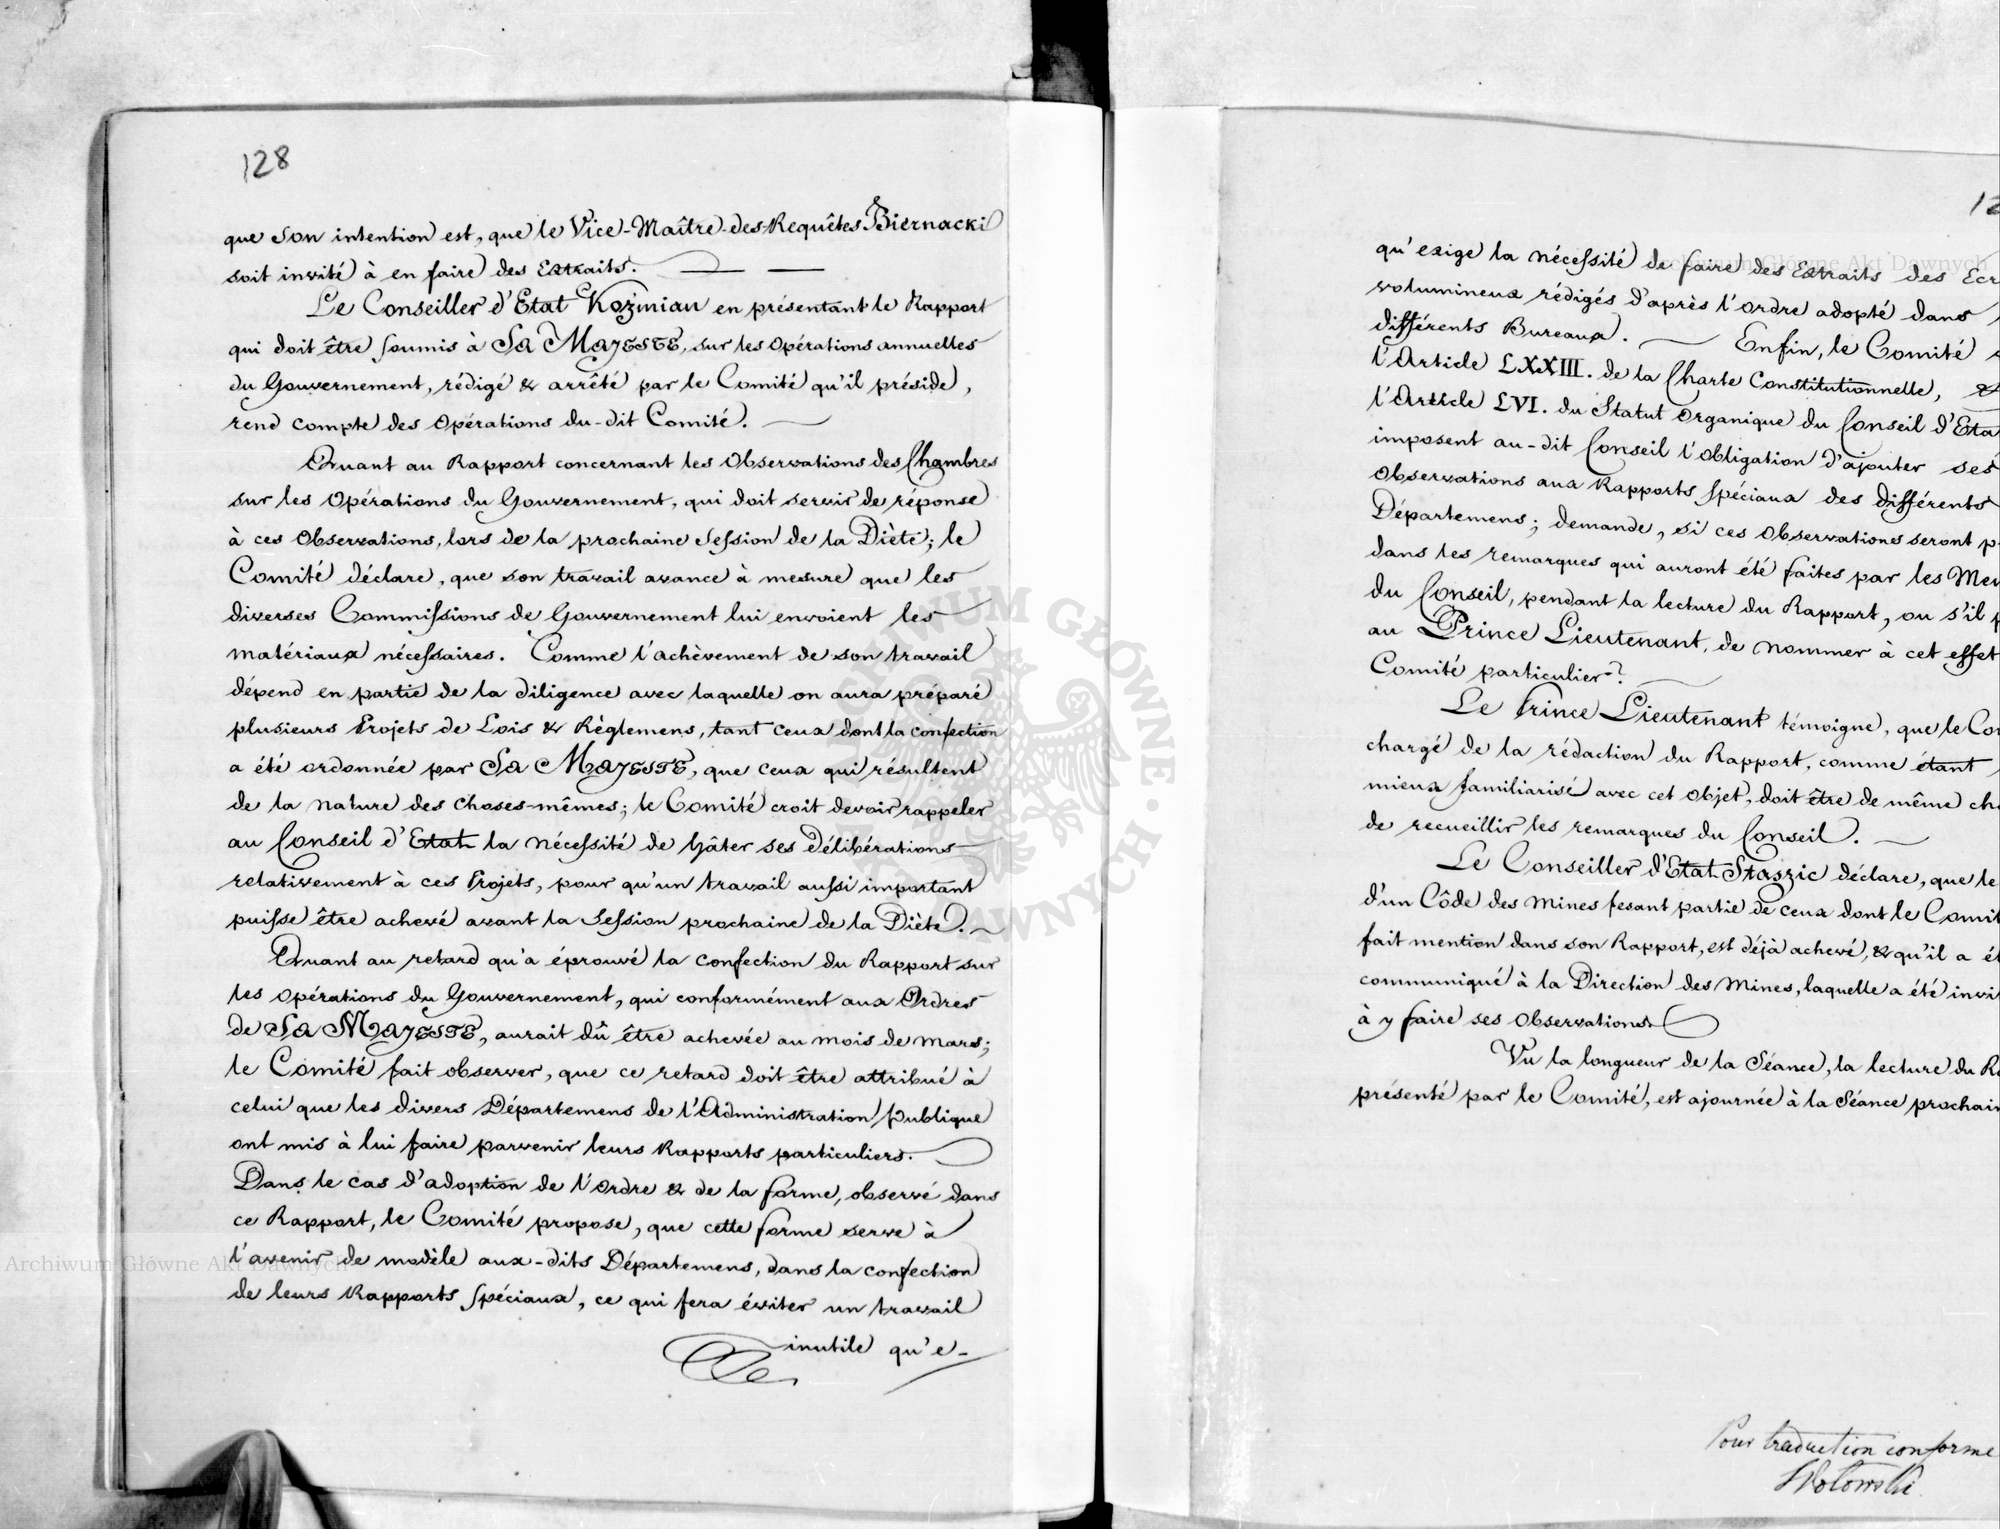 128
que Son intention est, que le Vice-Maître-des-Requêtes Biernacki
soit invité à en faire des Extraits.
Le Conseiller d'Etat Koźmian en présentant le Rapport
qui doit être soumis à Sa Majesté, sur les Opérations annuelles
du Gouvernement, rédigé & arrêté par le Comité qu'il préside,
rend compte des Opérations du-dit Comité.
Quant au Rapport concernant les Observations des Chambres
sur les Opérations du Gouvernement, qui doit servir de réponse
à ces Observations, lors de la prochaine Session de la Diète; le
Comité déclare, que son travail avance à mesure que les
diverses Commissions de Gouvernement lui envoient les
matériaux nécessaires. Comme l'achèvement de son travail
dépend en partie de la diligence avec laquelle on aura préparé
plusieurs Projets de Lois & Règlemens, tant ceux dont la confection
a été ordonnée par Sa Majesté, que ceux qui résultent
de la nature des choses-mêmes; le Comité croit devoir rappeler
au Conseil d'Etat la nécessité de hâter ses Délibérations
relativement à ces Projets, pour qu'un travail aussi important
puisse être achevé avant la Session prochaine de la Diète.
Quant au retard qu'a éprouvé la confection du Rapport sur
les opérations du Gouvernement, qui conformément aux Ordres
de Sa Majesté, aurait dû être achevée au mois de Mars;
le Comité fait observer, que ce retard doit être attribué à
celui que les divers Départemens de l'Administration publique
ont mis à lui faire parvenir leurs Rapports particuliers.
Dans le cas d'adoption de l'ordre & de la forme, observé dans
ce Rapport, le Comité propose, que cette forme serve à
l'avenir de modèle aux-dits Départemens, dans la confection
de leurs Rapports spéciaux, ce qui fera éviter un travail
inutile qu'e-
12
qu'exige la nécessité de faire des Extraits des Ecr
volumineux rédigés d'après l'ordre adopté dans
différents Bureaux. Enfin, le Comité
l'Article LXXIII. de la Charte Constitutionnelle, &
l'Article LVI. du Statut Organique du Conseil d'Eta
imposent au-dit Conseil l'obligation d'ajouter ses
Observations aux Rapports spéciaux des différents
Départemens; demande, si ces Observations seront p
dans les remarques qui auront été faites par les Mem
du Conseil, pendant la lecture du Rapport, ou s'il p
au Prince Lieutenant, de nommer à cet effet
Comité particulier?
Le Prince Lieutenant témoigne, que le Co
chargé de la rédaction du Rapport, comme étant
mieux familiarisé avec cet Objet, doit être de même cha
de recueillir les remarques du Conseil.
Le Conseiller d'Etat Staszic déclare, que le
d'un Côde des Mines fesant partie de ceux dont le Comit
fait mention dans son Rapport, est déjà achevé, & qu'il a ét
communiqué à la Direction des Mines, laquelle a été invit
à y faire ses Observations.
Vu la longueur de la Séance, la lecture du Ra
présenté par le Comité, est ajournée à la Séance prochain
Pour traduction conforme
Wolowski
Archiwum Główne Akt Dawnych
Archiwum Główne Akt Dawnych
ARCHIWUM GŁÓWNE AKT DAWNYCH